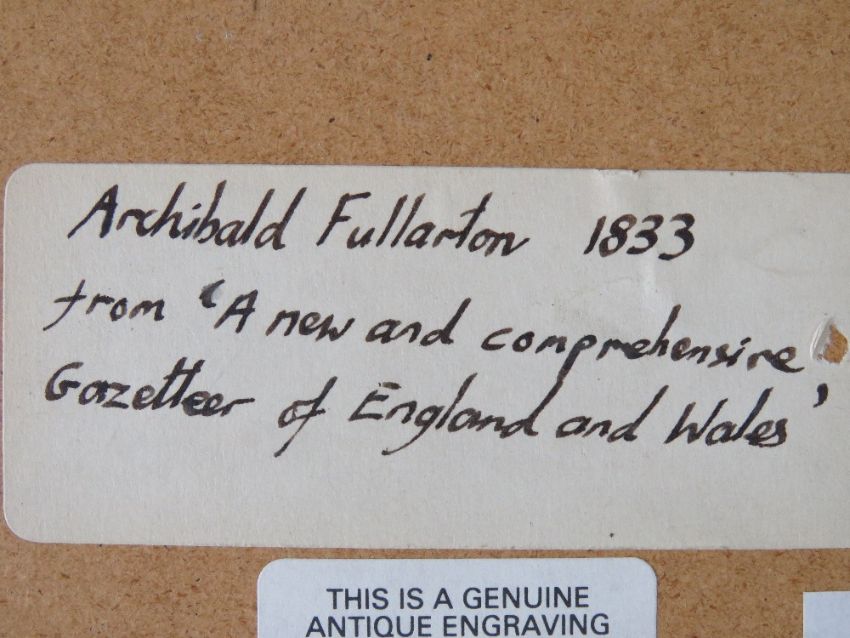 Archibald Fullarton 1833
from 'A new and comprehensive
Gazetteer of England and Wales'
THIS IS A GENUINE
ANTIQUE ENGRAVING